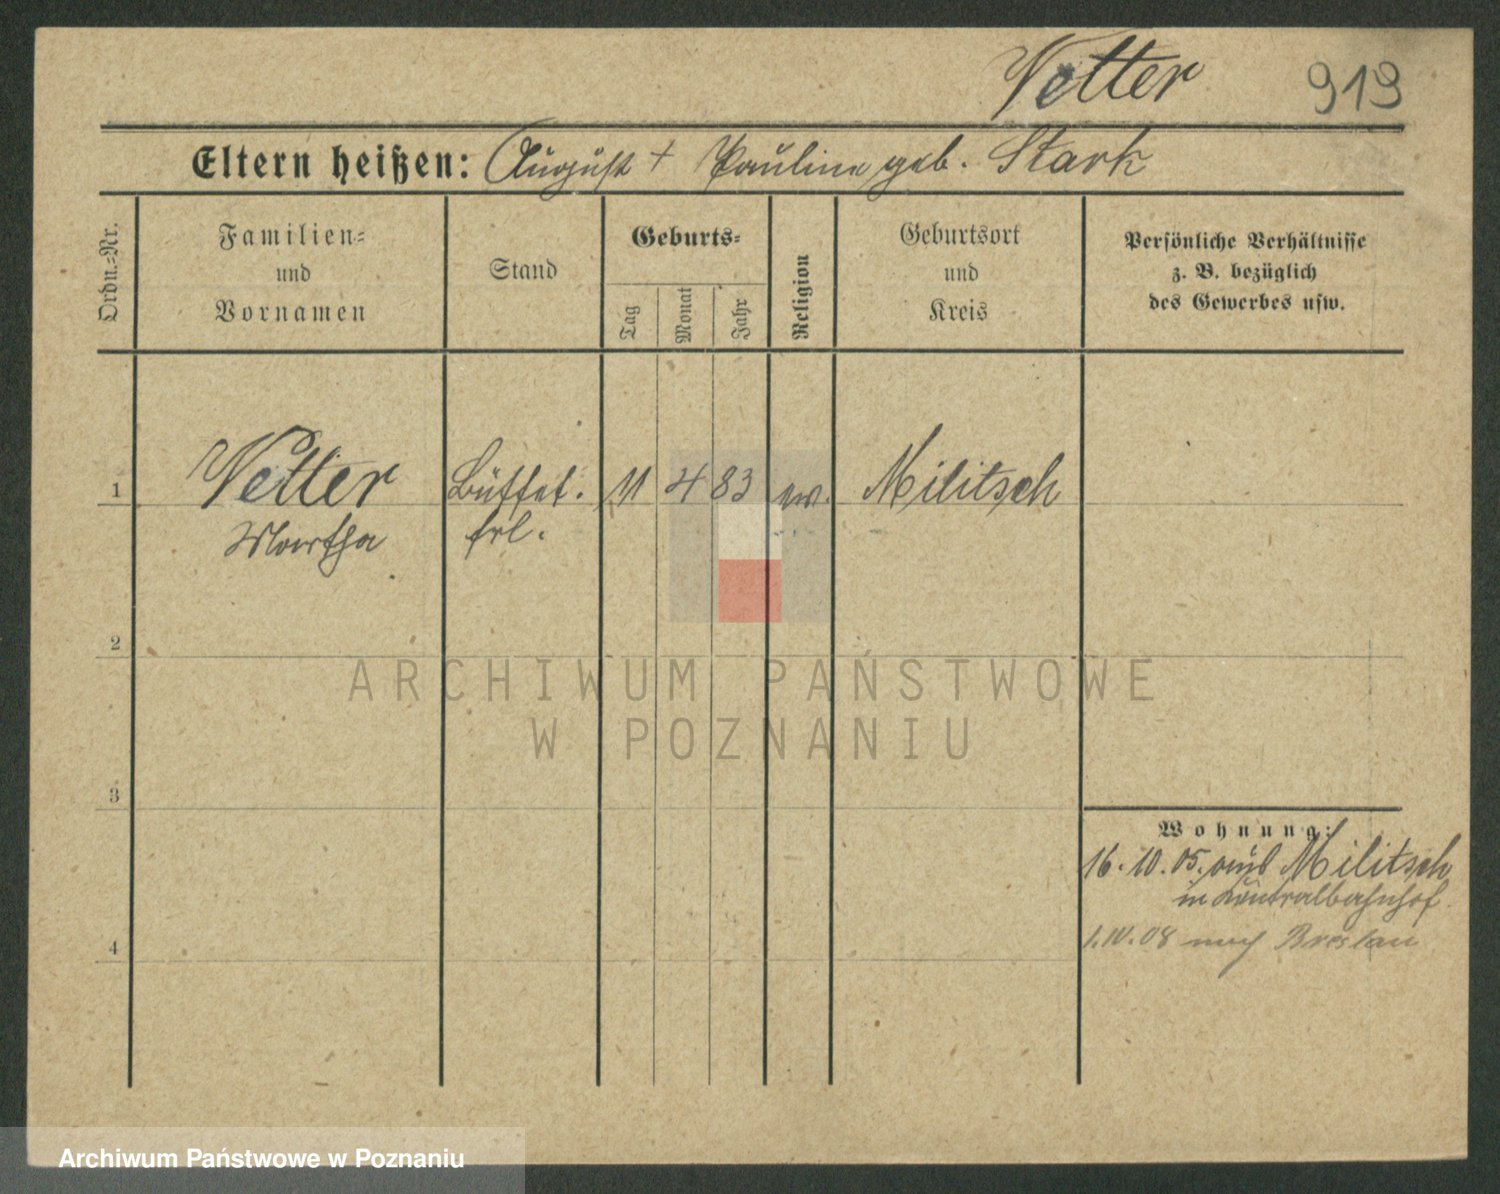 Vetter 919
Eltern heißen: August + Pauline geb. Stark
Ordn.=Nr.
Familien=
und
Vornamen
Stand
Geburts=
Tag
Monat
Jahr
Religion
Geburtsort
und
Kreis
Persönliche Verhältnisse
z. B. bezüglich
des Gewerbes usw.
1 Vetter Büffet. 11 4 83 ev. Militsch
Martha frl.
2
3
4
Wohnung:
16.10.05. aus Militsch
in Zentralbahnhof.
1.10.08 nach Breslau
ARCHIWUM PAŃSTWOWE
W POZNANIU
Archiwum Państwowe w Poznaniu